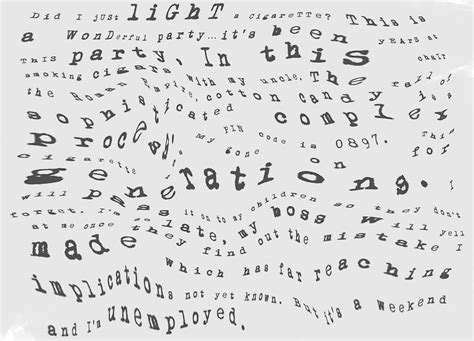 Did I just liGhT a cigareTTe? This is
a WonDerful party...it's been YEARS aT
THIS party. In this chair
smoking cigars with my uncle. The of
the Roman Empire. cotton candy is a
sophisticated complex
process. my PIN code is 0897. This
cigarette gone on for
generations. I
will pass it on to my children so they don't
forget. I'm so late, my boss will yell
at me once they find out the mistake I
made which has far reaching
implications not yet known. But it's a weekend
and I'm unemployed.